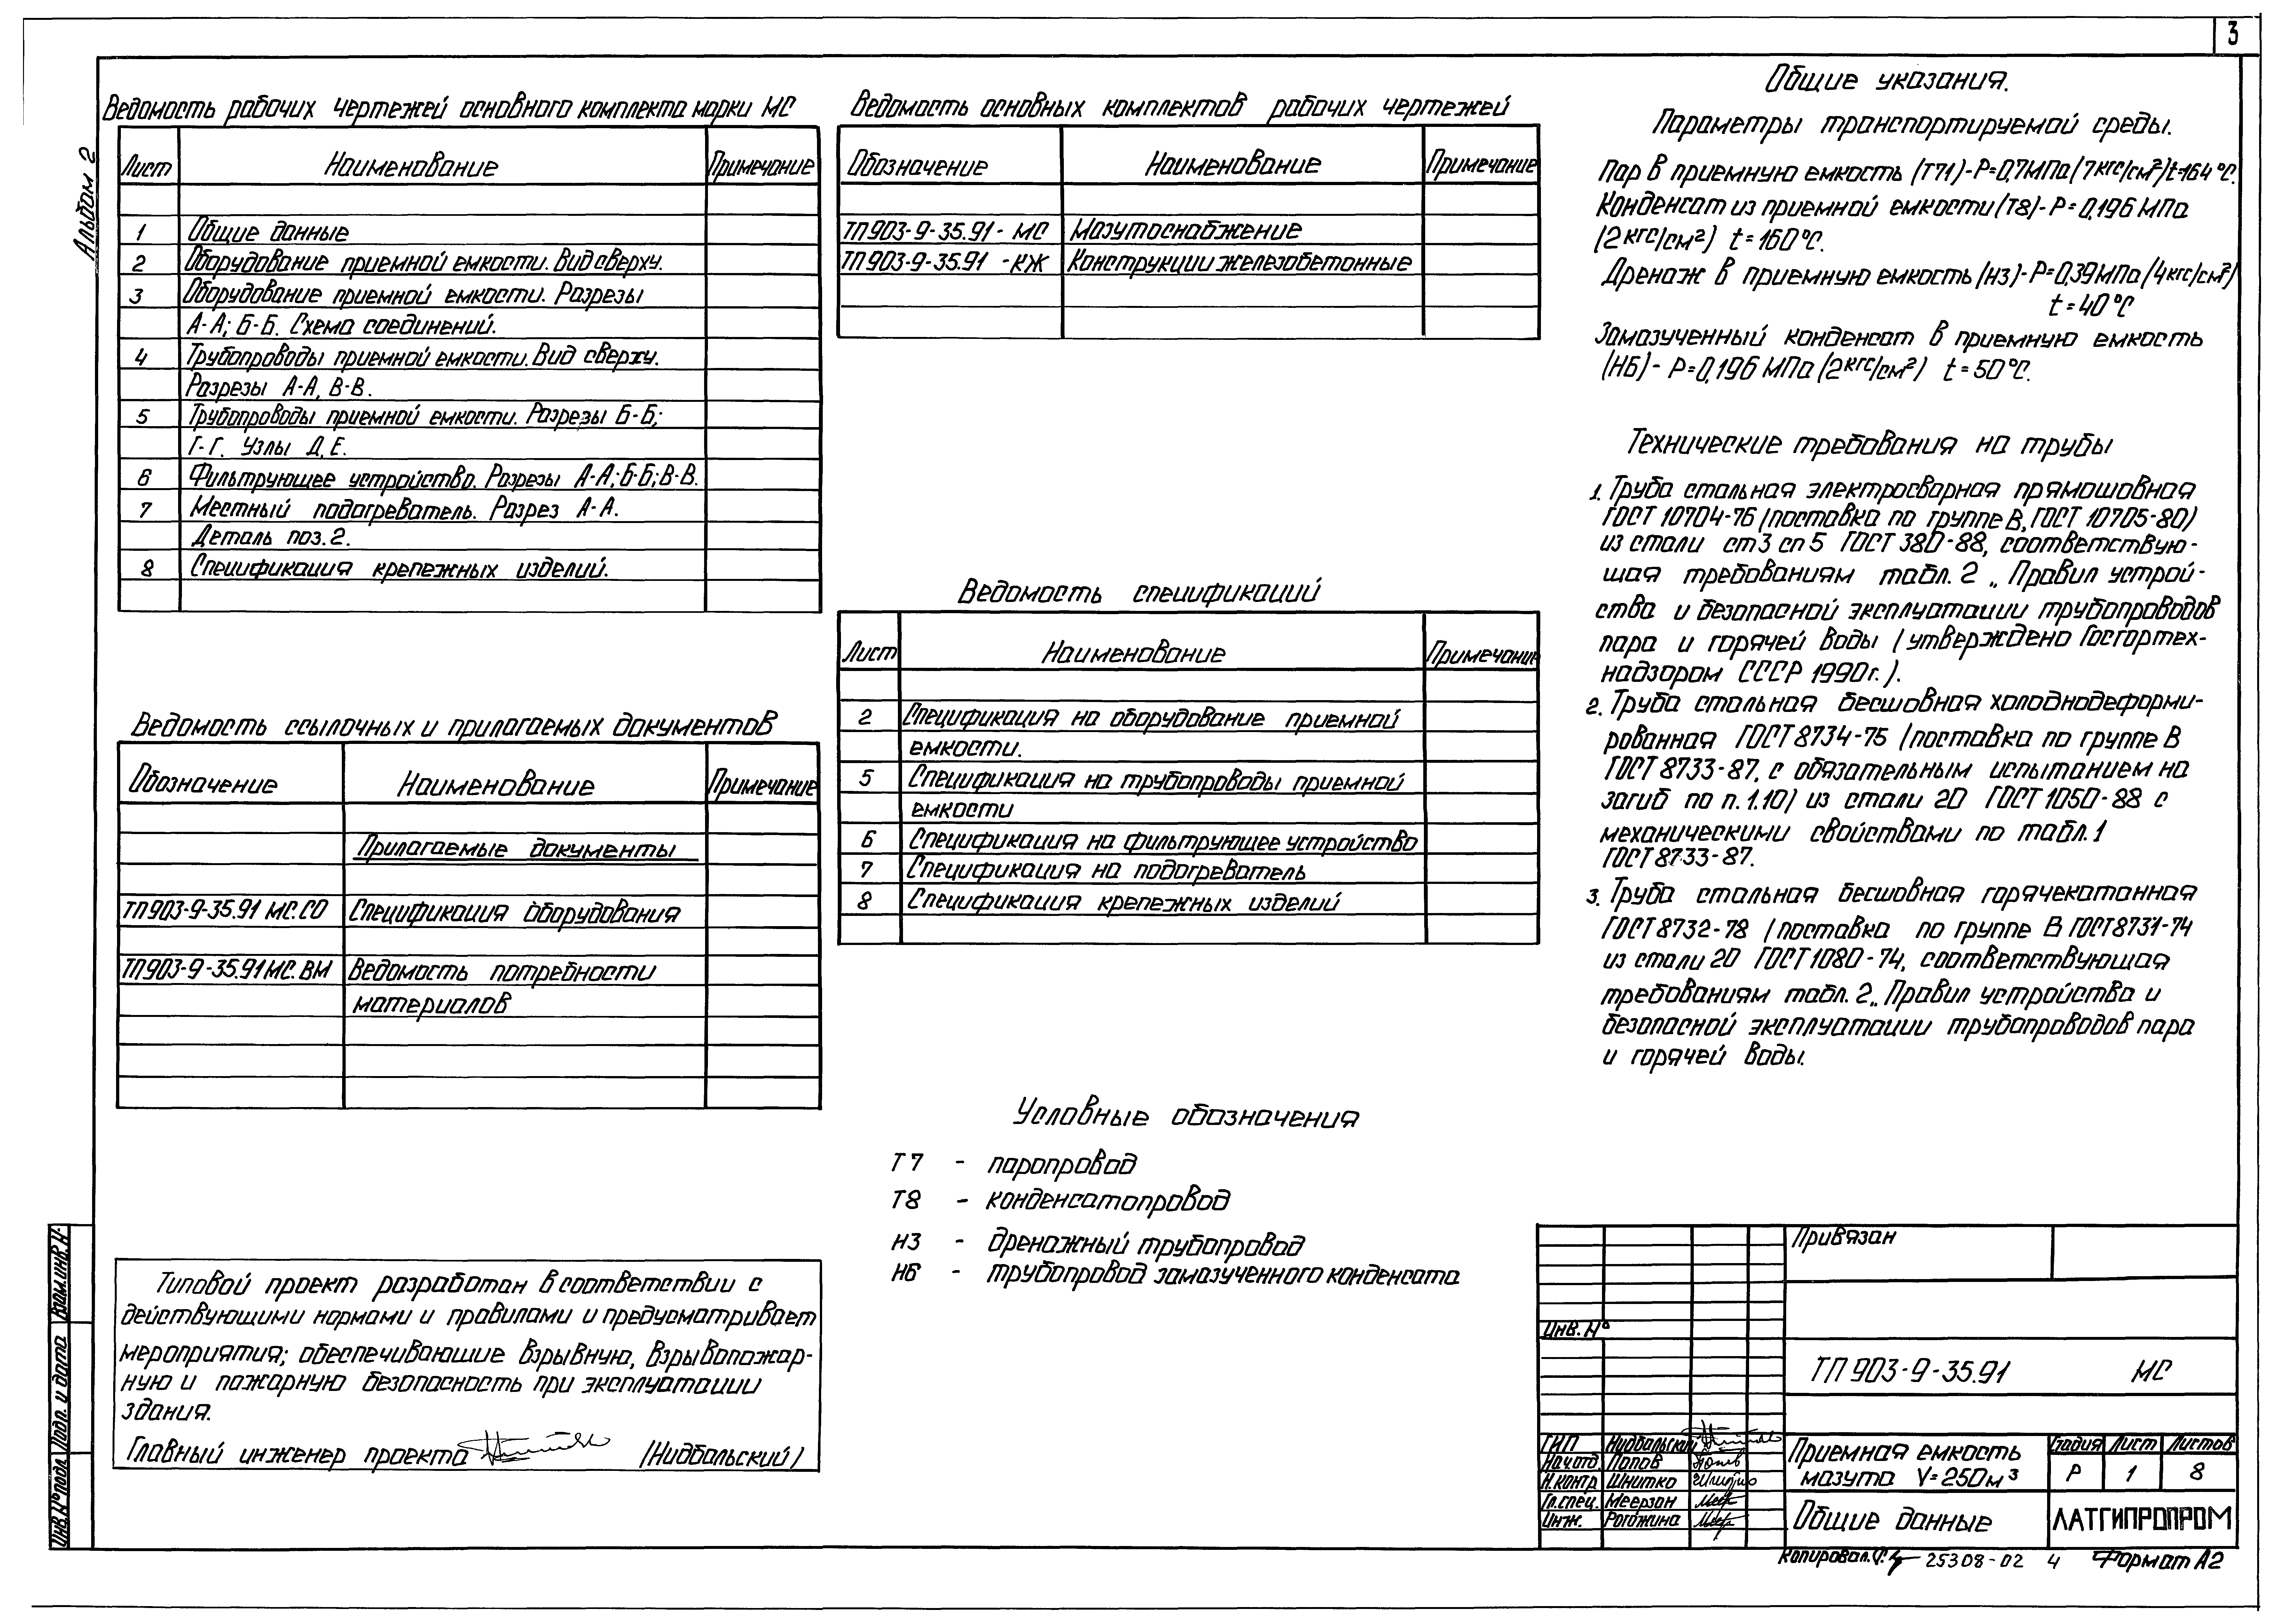 3
Альбом 2
Ведомость рабочих чертежей основного комплекта марки МС
Лист Наименование Примечание
1 Общие данные
2 Оборудование приемной емкости. Вид сверху.
3 Оборудование приемной емкости. Разрезы
А-А; Б-Б. Схема соединений.
4 Трубопроводы приемной емкости. Вид сверху.
Разрезы А-А, В-В.
5 Трубопроводы приемной емкости. Разрезы Б-Б;
Г-Г. Узлы Д, Е.
6 Фильтрующее устройство. Разрезы А-А; Б-Б; В-В.
7 Местный подогреватель. Разрез А-А.
Деталь поз. 2.
8 Спецификация крепежных изделий.
Ведомость ссылочных и прилагаемых документов
Обозначение Наименование Примечание
Прилагаемые документы
ТП903-9-35.91 МС.СО Спецификация оборудования
ТП903-9-35.91 МС.ВМ Ведомость потребности
материалов
Типовой проект разработан в соответствии с
действующими нормами и правилами и предусматривает
мероприятия; обеспечивающие взрывную, взрывопожар-
ную и пожарную безопасность при эксплуатации
здания.
Главный инженер проекта (Нидбальский)
Ведомость основных комплектов рабочих чертежей
Обозначение Наименование Примечание
ТП903-9-35.91 - МС Мазутоснабжение
ТП903-9-35.91 - КЖ Конструкции железобетонные
Ведомость спецификаций
Лист Наименование Примечание
2 Спецификация на оборудование приемной
емкости.
5 Спецификация на трубопроводы приемной
емкости
6 Спецификация на фильтрующее устройство
7 Спецификация на подогреватель
8 Спецификация крепежных изделий
Условные обозначения
Т7 - паропровод
Т8 - конденсатопровод
Н3 - дренажный трубопровод
Н6 - трубопровод замазученного конденсата
Общие указания.
Параметры транспортируемой среды.
Пар в приемную емкость (Т71)-Р=0,7МПа(7кгс/см²)t=164°С.
Конденсат из приемной емкости (Т8)-Р=0,196 МПа
(2кгс/см²) t=160°С.
Дренаж в приемную емкость (Н3)-Р=0,39МПа(4кгс/см²)
t=40°С
Замазученный конденсат в приемную емкость
(Н6)-Р=0,196 МПа (2кгс/см²) t=50°С.
Технические требования на трубы
1. Труба стальная электросварная прямошовная
ГОСТ 10704-76 (поставка по группе В, ГОСТ 10705-80)
из стали ст3 сп5 ГОСТ 380-88, соответствую-
щая требованиям табл. 2 „Правил устрой-
ства и безопасной эксплуатации трубопроводов
пара и горячей воды (утверждено Госгортех-
надзором СССР 1990г.).
2. Труба стальная бесшовная холоднодеформи-
рованная ГОСТ 8734-75 (поставка по группе В
ГОСТ 8733-87, с обязательным испытанием на
загиб по п. 1.10) из стали 20 ГОСТ 1050-88 с
механическими свойствами по табл. 1
ГОСТ 8733-87.
3. Труба стальная бесшовная горячекатанная
ГОСТ 8732-78 (поставка по группе В ГОСТ 8731-74
из стали 20 ГОСТ 1080-74, соответствующая
требованиям табл. 2 „Правил устройства и
безопасной эксплуатации трубопроводов пара
и горячей воды.
Привязан
Инв. №
ТП 903-9-35.91 МС
ГИП Нидбальский
Нач.отд. Попов
Н.контр Шнитко
Гл.спец. Меерзон
Инж. Рогожина
Приемная емкость
мазута V=250м³
Стадия Лист Листов
Р 1 8
Общие данные
ЛАТГИПРОПРОМ
Копировал. 25308-02 4 Формат А2
Инв.№подл. Подп. и дата Взам.инв.№